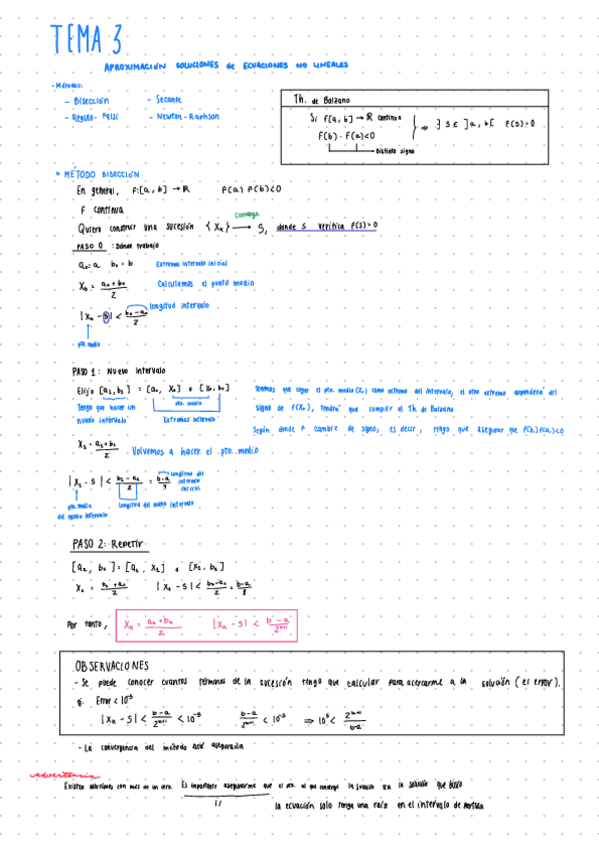 TEMA 3
APROXIMACIÓN SOLUCIONES de ECUACIONES NO LINEALES
- Métodos:
- Bisección - Secante
- Regula-Falsi - Newton-Raphson
Th. de Bolzano
Si f[a,b] → ℝ continua
f(b)·f(a)<0
⇒ ∃ s ∈ ]a,b[ f(s)=0
Distinto signo
MÉTODO BISECCIÓN
En general, f:[a,b] → ℝ f(a) f(b)<0
f continua
converge
Quiero construir una sucesión {Xn} → S, donde s verifica f(s)=0
PASO 0: Dónde trabajo
a₀=a b₀=b Extremos intervalo inicial
X₀ = (a₀+b₀)/2 Calculamos el punto medio
longitud intervalo
|X₀ - s| < (b₀-a₀)/2
pto. medio
PASO 1: Nuevo intervalo
Elijo [a₁,b₁] = [a₀, X₀] o [X₀, b₀]
pto. medio
Tengo que hacer un nuevo intervalo
Extremos intervalo
Tenemos que coger el pto. medio (X₀) como extremo del intervalo, el otro extremo dependerá del
signo de f(X₀), tendrá que cumplir el Th de Bolzano
Según donde f cambie de signo, es decir, tengo que asegurar que f(b₁)f(a₁)<0
X₁ = (a₁+b₁)/2 Volvemos a hacer el pto. medio
|X₁ - s| < (b₁-a₁)/2 = (b-a)/4
longitud del intervalo inicial
pto. medio del nuevo intervalo
longitud del nuevo intervalo
PASO 2: Repetir
[a₂, b₂] = [a₁, X₁] o [X₁, b₁]
X₂ = (b₂+a₂)/2 |X₂ - s| < (b₂-a₂)/2 = (b-a)/8
Por tanto, Xn = (an+bn)/2 |Xn - s| < (b-a)/2ⁿ⁺¹
OBSERVACIONES
- Se puede conocer cuantos términos de la sucesión tengo que calcular para acercarme a la solución (el error).
Ej: Error < 10⁻⁵
|Xn - s| < (b-a)/2ⁿ⁺¹ < 10⁻⁵ (b-a)/2ⁿ⁺¹ < 10⁻⁵ ⇒ 10⁵ < 2ⁿ⁺¹/(b-a)
- La convergencia del método está asegurada
advertencia
Existen soluciones con más de un cero. Es importante asegurarme que el pto. al que converge la función sea la solución que busco
la ecuación solo tenga una raíz en el intervalo de partida